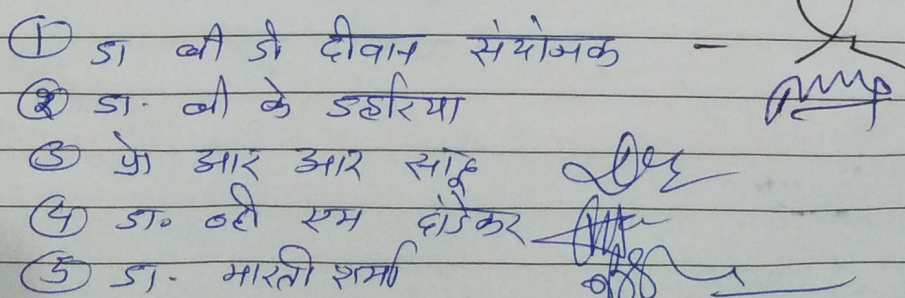 ① डा बी डी दीवान संयोजक -
② डा. बी के डहरिया
③ प्रो आर आर साहू
④ डा० व्ही एम दांडेकर
⑤ डा. भारती शर्मा